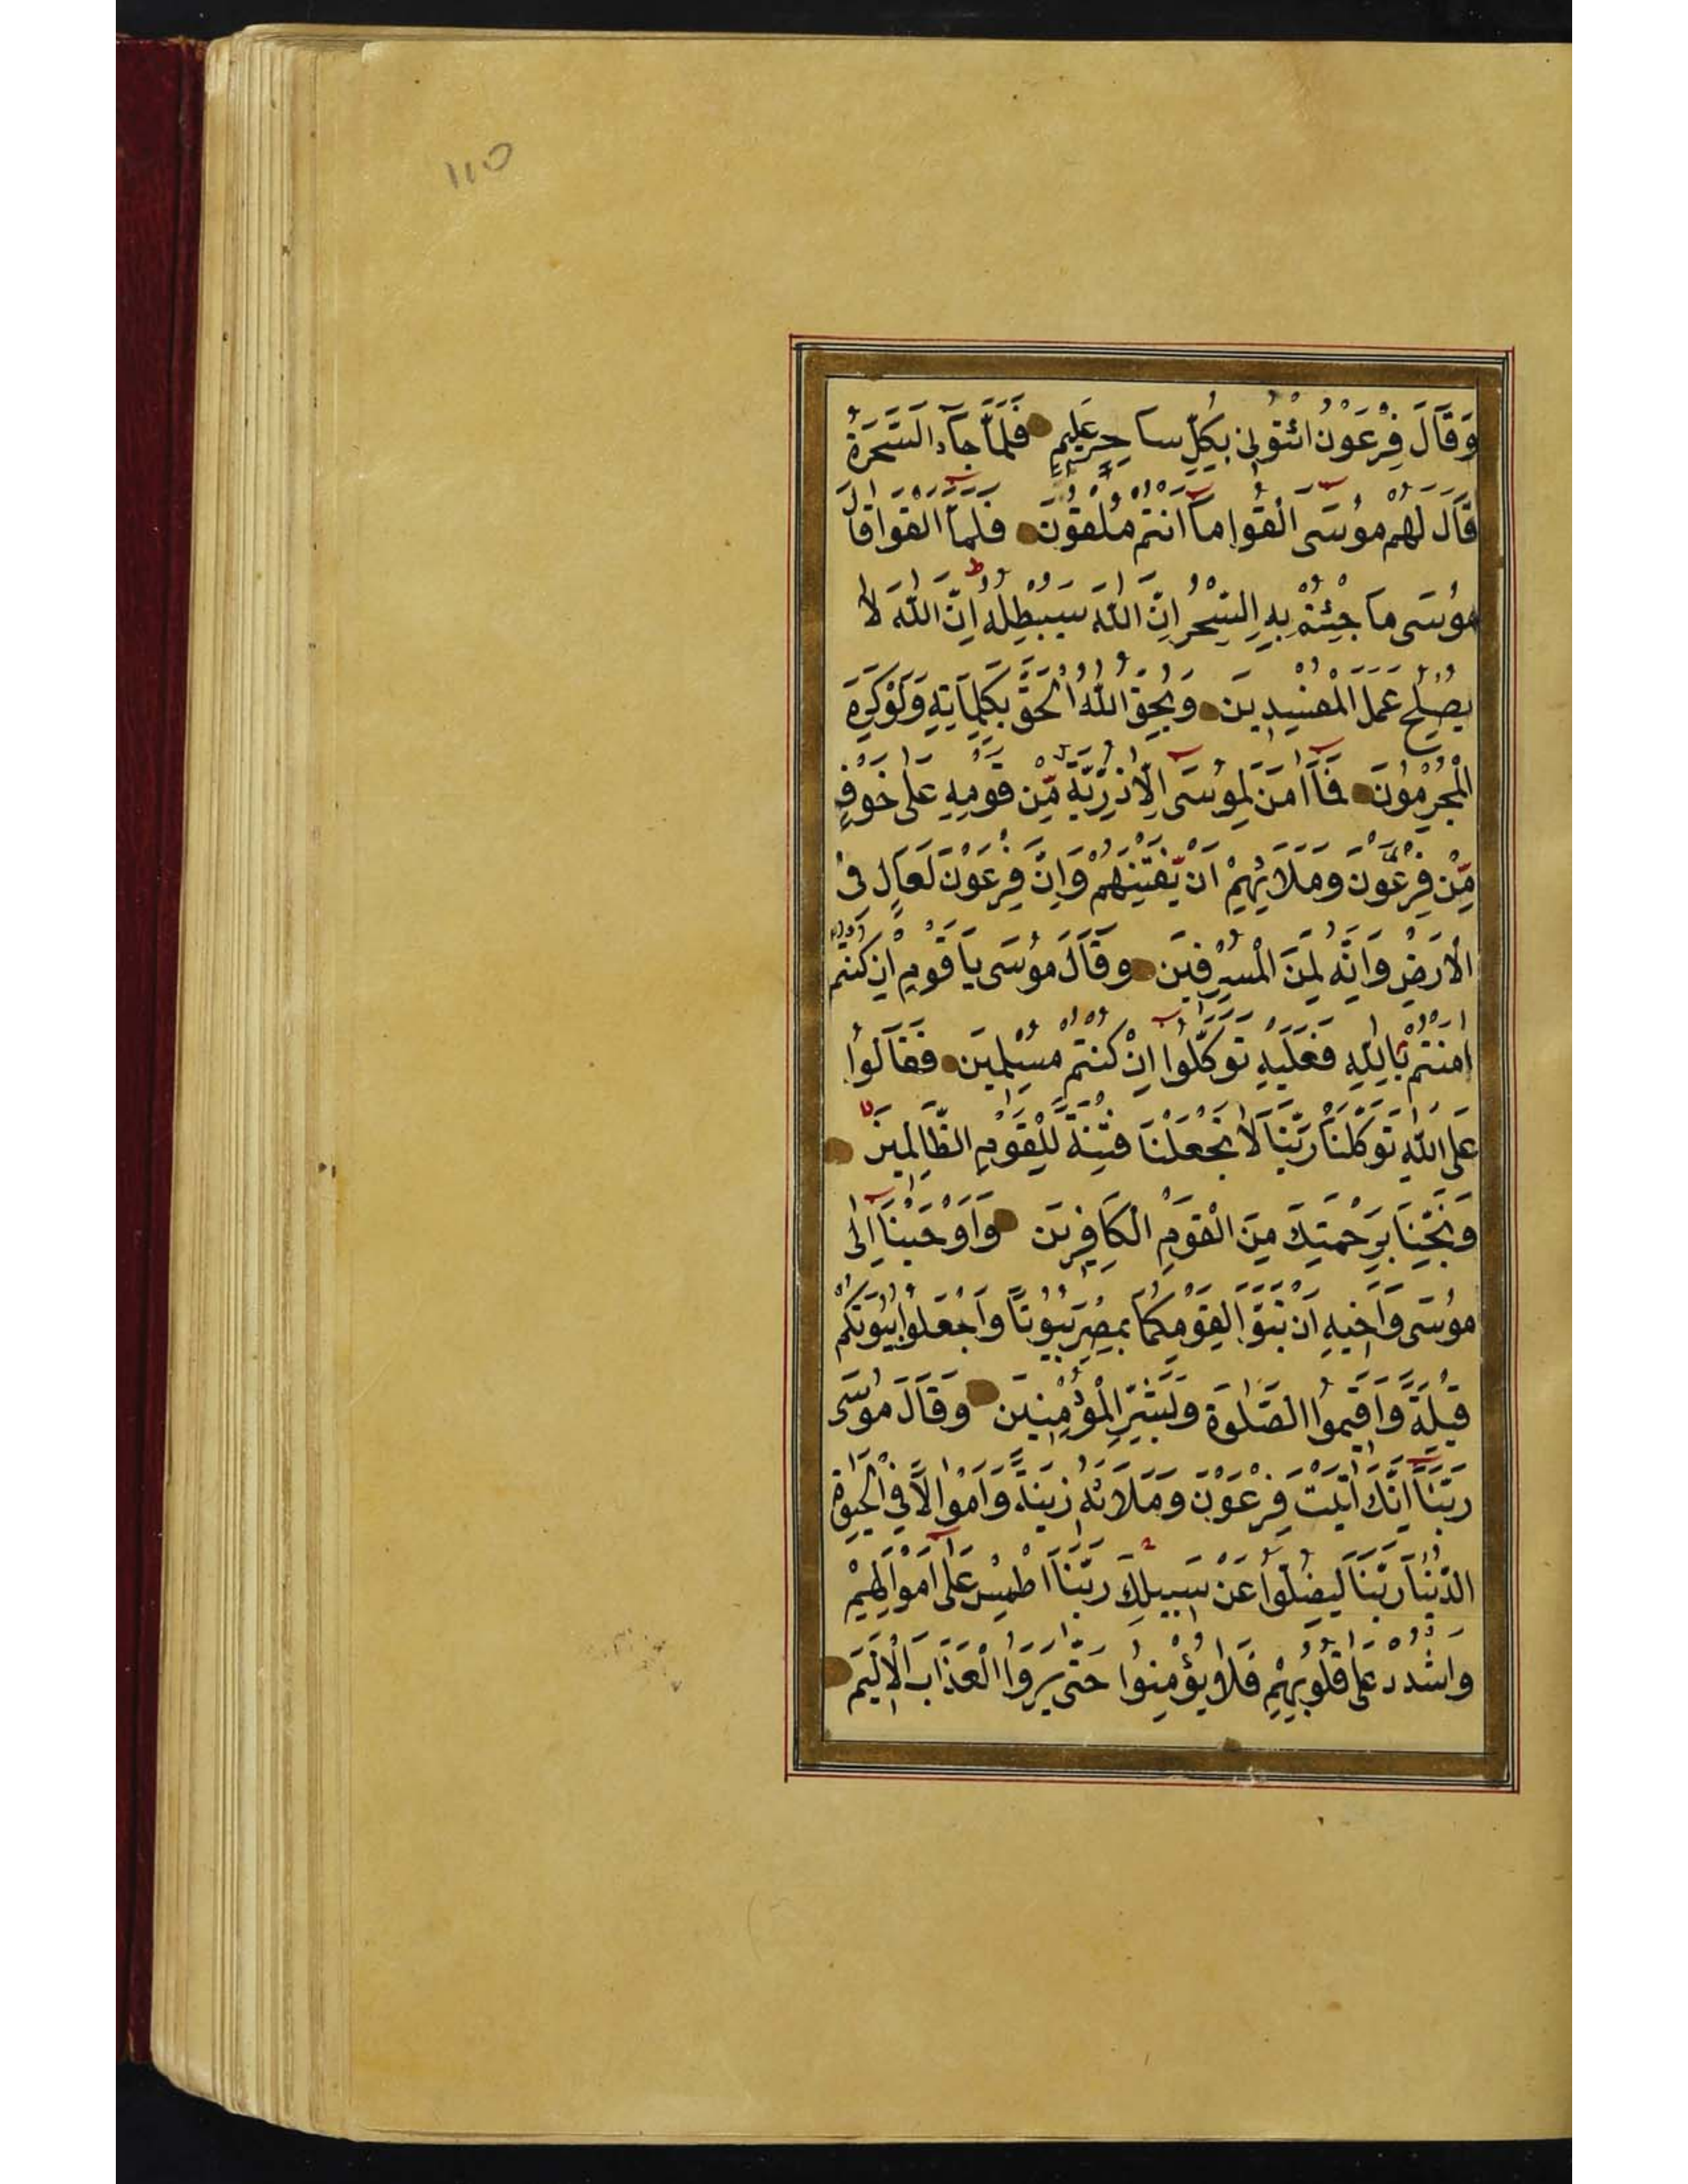 ١١٥
وَقَالَ فِرْعَوْنُ ائْتُونِى بِكُلِّ سَاحِرٍ عَلِيمٍ فَلَمَّا جَآءَ السَّحَرَةُ
قَالَ لَهُمْ مُوسَى أَلْقُوا مَآ اَنْتُمْ مُلْقُونَ فَلَمَّآ اَلْقَوْا قَالَ
مُوسَى مَا جِئْتُمْ بِهِ السِّحْرُ اِنَّ اللّٰهَ سَيُبْطِلُهُ اِنَّ اللّٰهَ لَا
يُصْلِحُ عَمَلَ الْمُفْسِدِينَ وَيُحِقُّ اللّٰهُ الْحَقَّ بِكَلِمَاتِهِ وَلَوْ كَرِهَ
الْمُجْرِمُونَ فَمَآ اٰمَنَ لِمُوسَى اِلَّا ذُرِّيَّةٌ مِّنْ قَوْمِهِ عَلٰى خَوْفٍ
مِّنْ فِرْعَوْنَ وَمَلَائِهِمْ اَنْ يَّفْتِنَهُمْ وَاِنَّ فِرْعَوْنَ لَعَالٍ فِى
الْاَرْضِ وَاِنَّهُ لَمِنَ الْمُسْرِفِينَ وَقَالَ مُوسَى يَا قَوْمِ اِنْ كُنْتُمْ
اٰمَنْتُمْ بِاللّٰهِ فَعَلَيْهِ تَوَكَّلُوا اِنْ كُنْتُمْ مُسْلِمِينَ فَقَالُوا
عَلَى اللّٰهِ تَوَكَّلْنَا رَبَّنَا لَا تَجْعَلْنَا فِتْنَةً لِّلْقَوْمِ الظَّالِمِينَ
وَنَجِّنَا بِرَحْمَتِكَ مِنَ الْقَوْمِ الْكَافِرِينَ وَاَوْحَيْنَآ اِلٰى
مُوسَى وَاَخِيهِ اَنْ تَبَوَّاٰ لِقَوْمِكُمَا بِمِصْرَ بُيُوتًا وَاجْعَلُوا بُيُوتَكُمْ
قِبْلَةً وَاَقِيمُوا الصَّلٰوةَ وَبَشِّرِ الْمُؤْمِنِينَ وَقَالَ مُوسَى
رَبَّنَآ اِنَّكَ اٰتَيْتَ فِرْعَوْنَ وَمَلَاَئَهُ زِينَةً وَاَمْوَالًا فِى الْحَيٰوةِ
الدُّنْيَا رَبَّنَا لِيُضِلُّوا عَنْ سَبِيلِكَ رَبَّنَا اطْمِسْ عَلٰٓى اَمْوَالِهِمْ
وَاشْدُدْ عَلٰى قُلُوبِهِمْ فَلَا يُؤْمِنُوا حَتّٰى يَرَوُا الْعَذَابَ الْاَلِيمَ